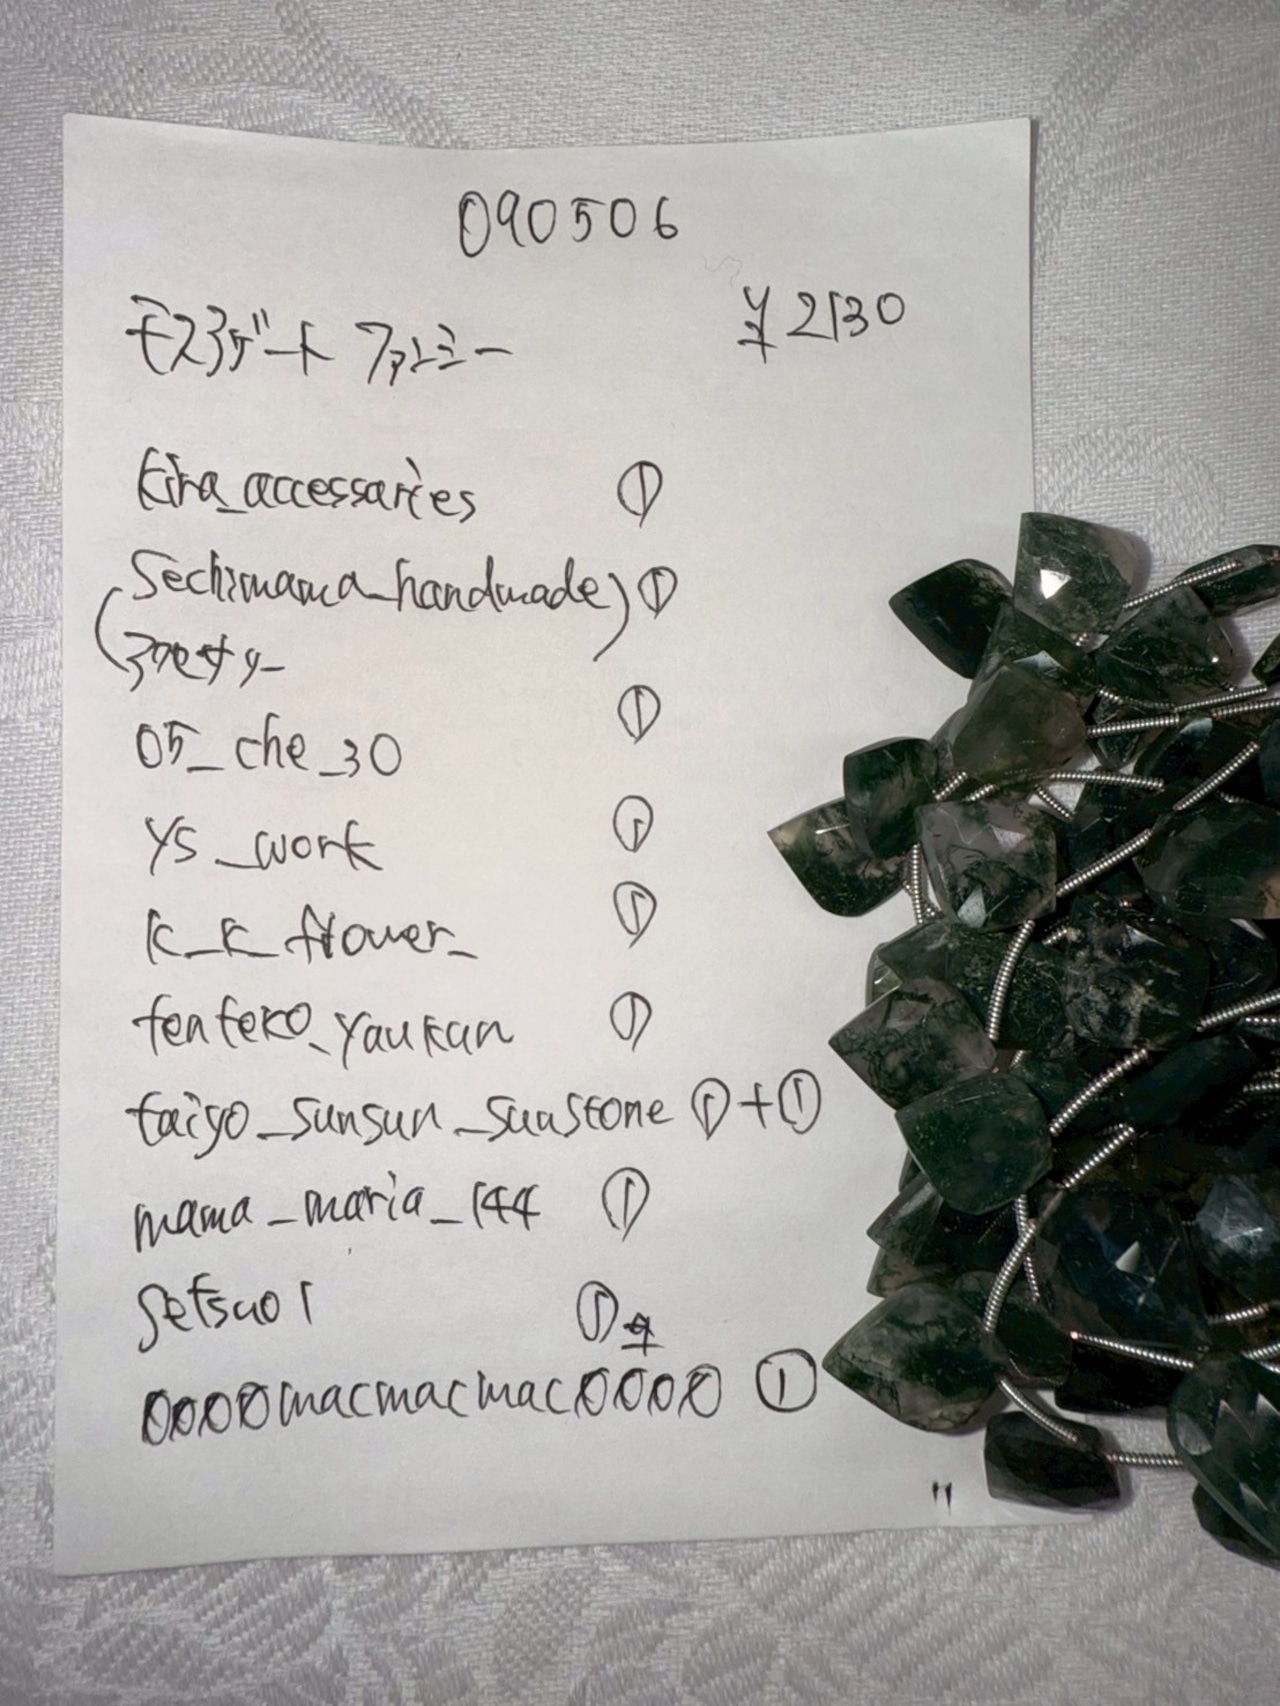 090506
モスアゲート ファンシー ¥2130
kira_accessaries ①
(Sechimama_handmade) ①
05_che_30 ①
YS_work ①
k_k_flower_ ①
tenteko_yaukan ①
taiyo_sunsun_sunstone ①+①
mama_maria_144 ①
Setsuo1 ①
0000macmacmac0000 ①
11